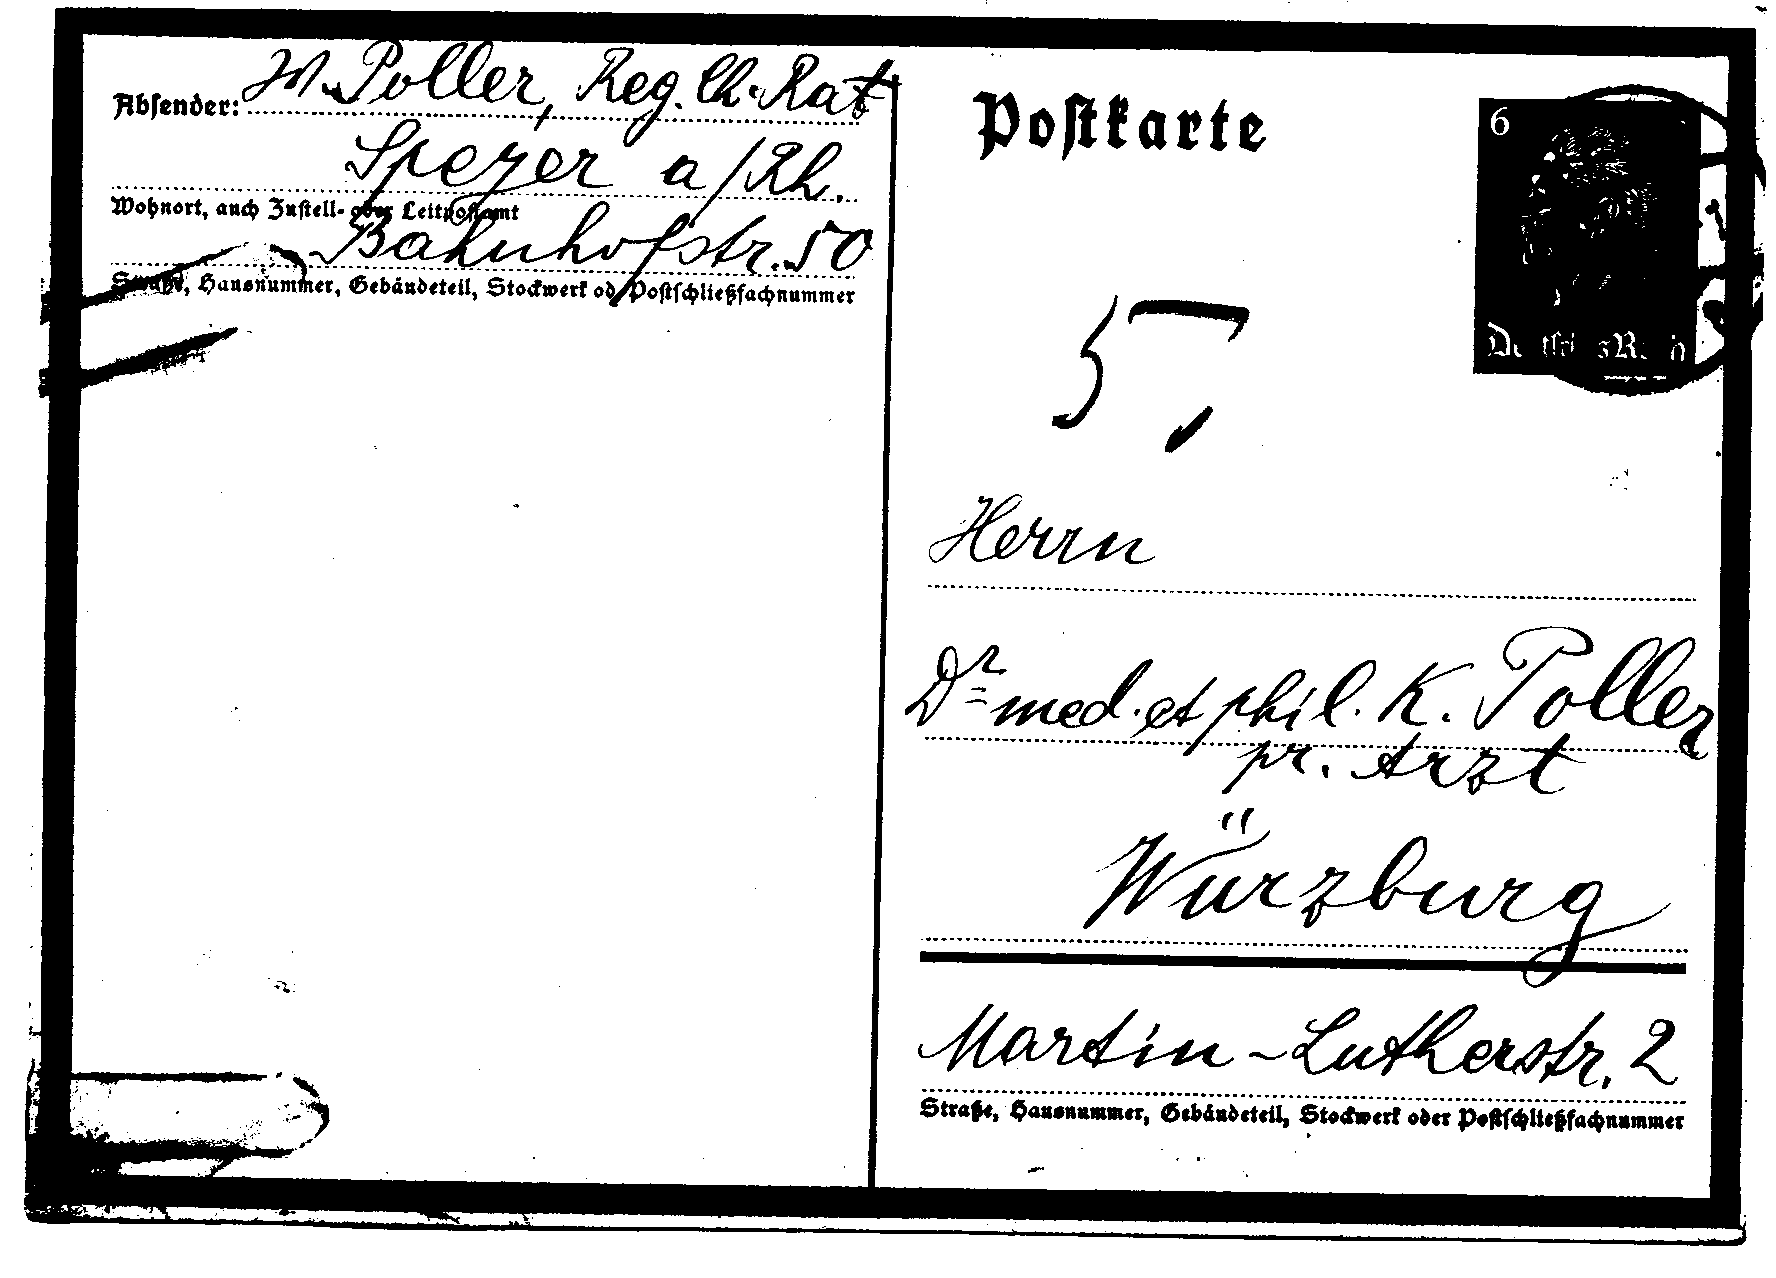 Absender: W. Poller, Reg. Ch. Rat
Speyer a/Rh.
Wohnort, auch Zustell- oder Leitpostamt
Bahnhofstr. 50
Straße, Hausnummer, Gebäudeteil, Stockwerk od. Postschließfachnummer
Postkarte
6
Deutsches Reich
5,
Herrn
Dr med. et phil. K. Poller
pr. Arzt
Würzburg
Martin-Lutherstr. 2
Straße, Hausnummer, Gebäudeteil, Stockwerk oder Postschließfachnummer